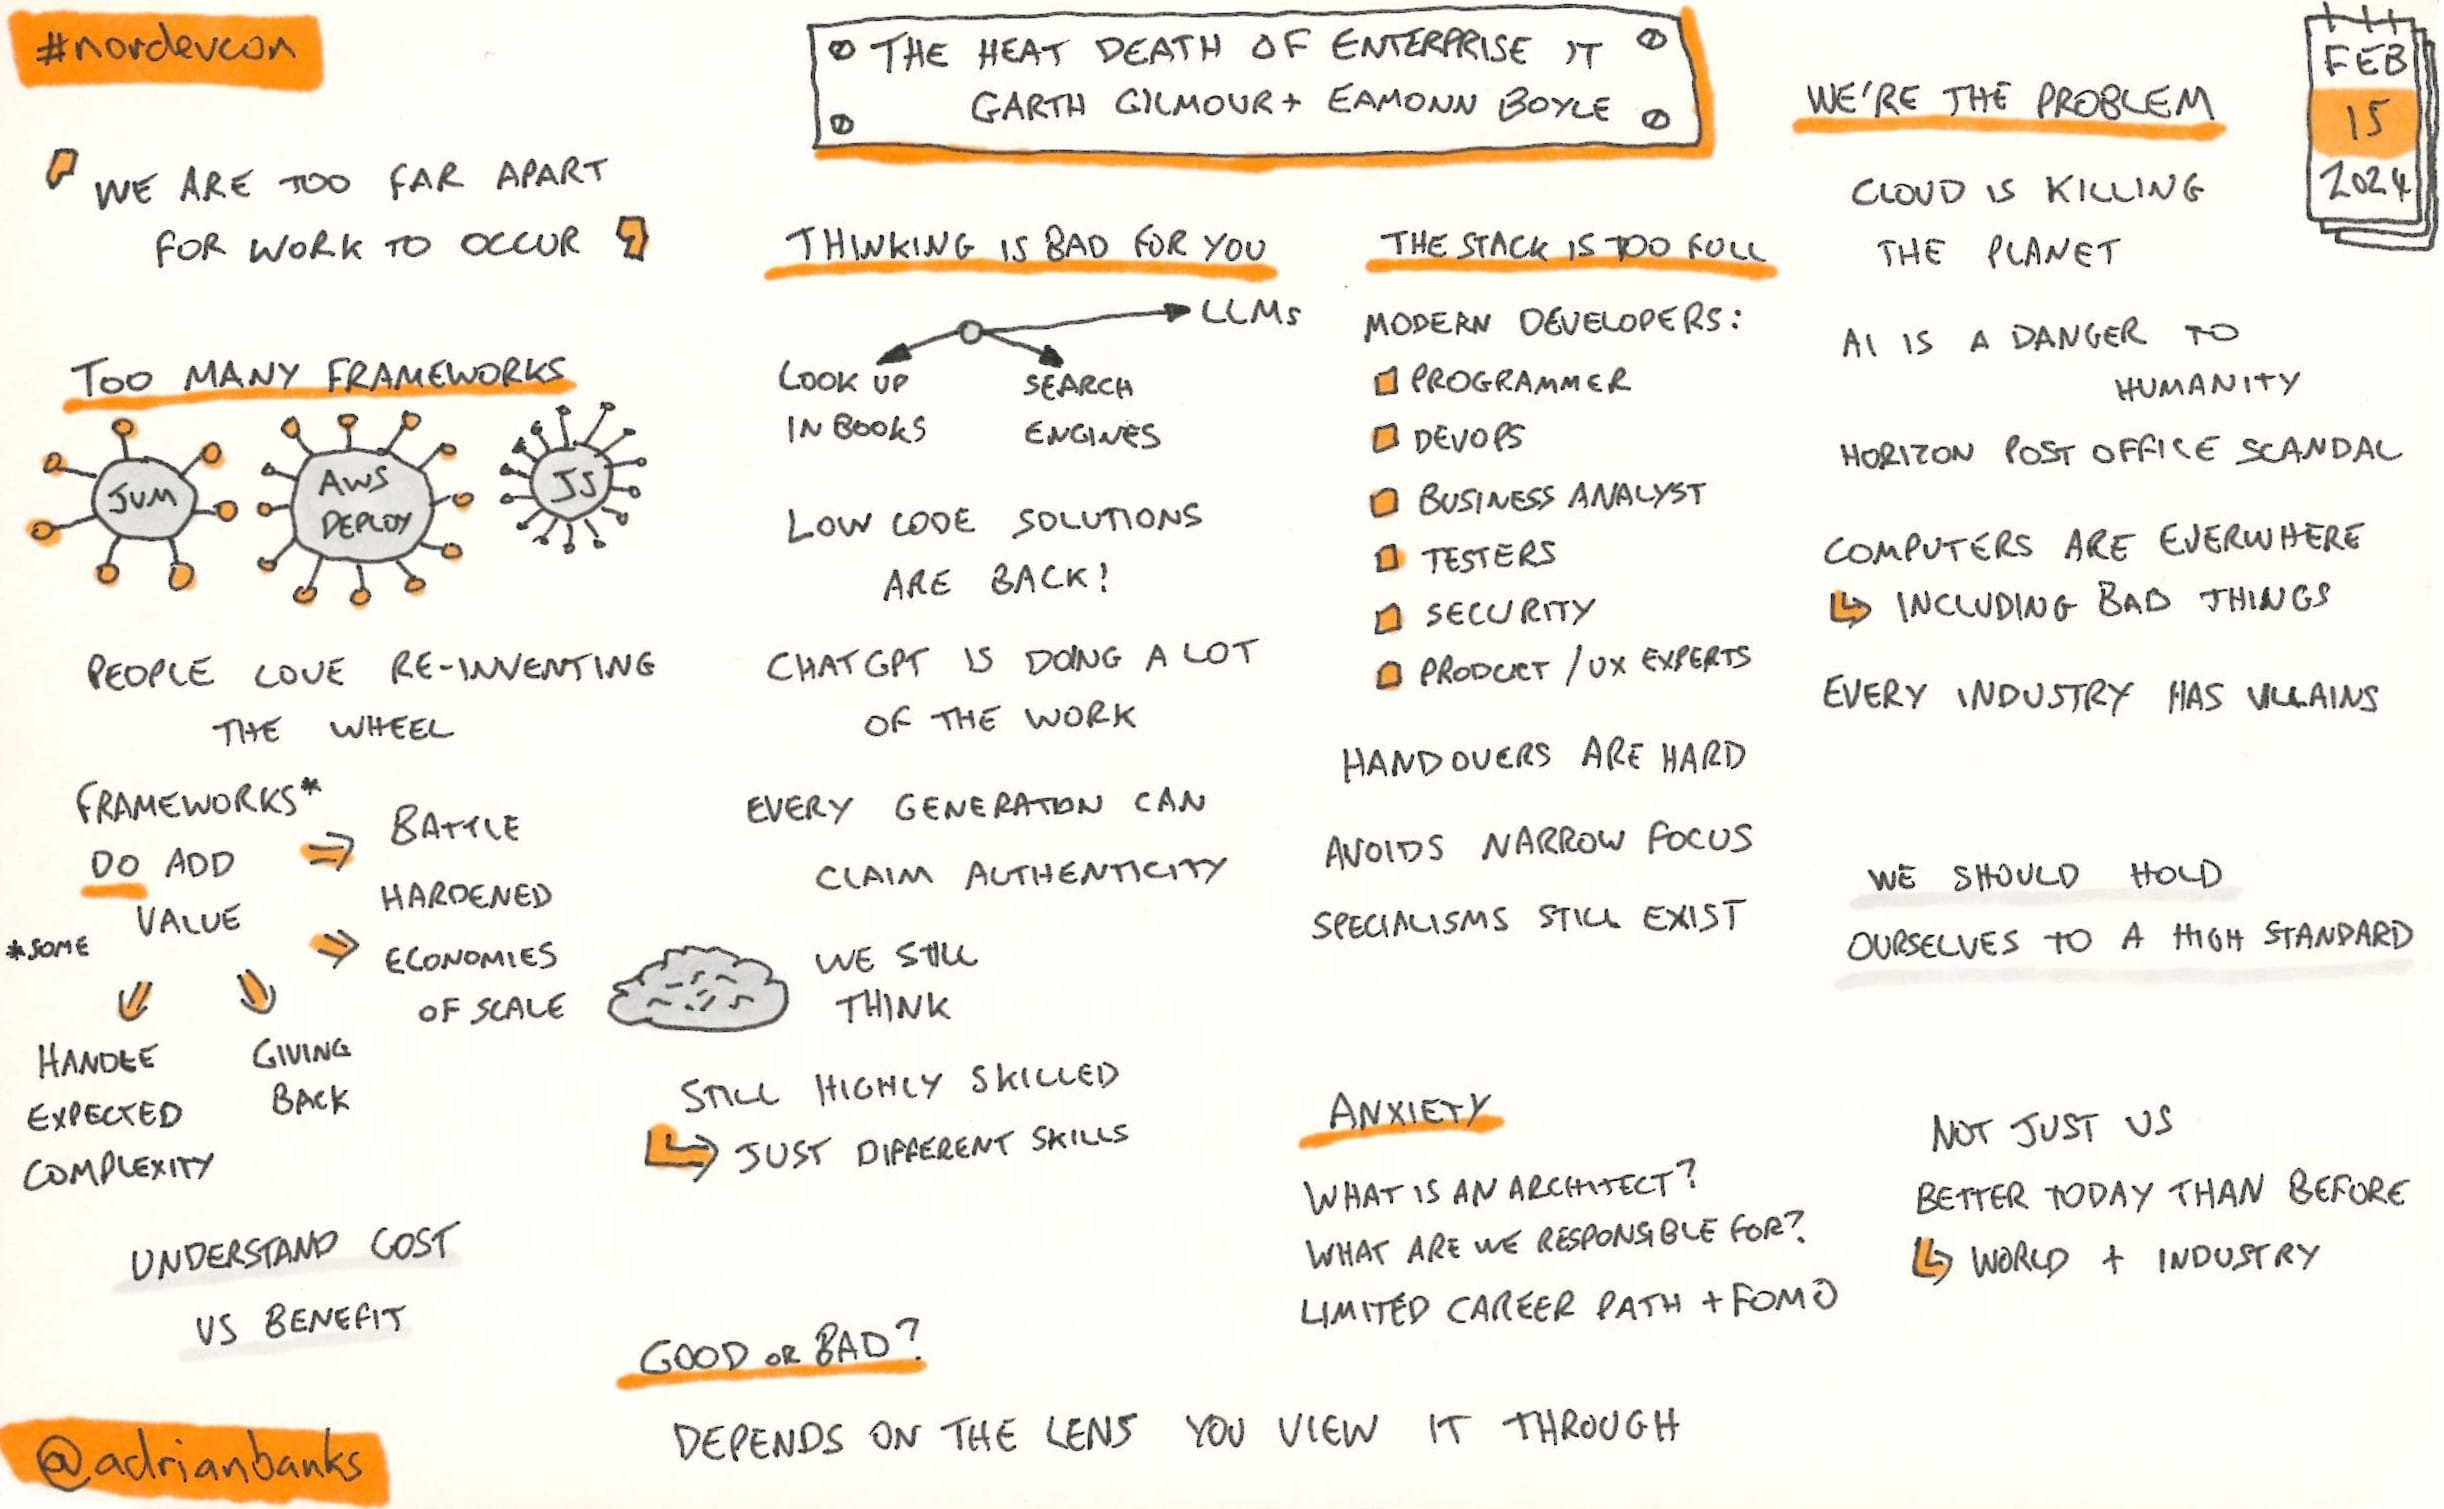 #nordevcon
THE HEAT DEATH OF ENTERPRISE IT
GARTH GILMOUR + EAMONN BOYLE
FEB
15
2024
WE ARE TOO FAR APART
FOR WORK TO OCCUR
TOO MANY FRAMEWORKS
JVM
AWS
DEPLOY
JS
PEOPLE LOVE RE-INVENTING
THE WHEEL
FRAMEWORKS*
DO ADD
VALUE
*SOME
BATTLE
HARDENED
ECONOMIES
OF SCALE
HANDLE
EXPECTED
COMPLEXITY
GIVING
BACK
UNDERSTAND COST
VS BENEFIT
THINKING IS BAD FOR YOU
LLMs
LOOK UP
IN BOOKS
SEARCH
ENGINES
LOW CODE SOLUTIONS
ARE BACK!
CHATGPT IS DOING A LOT
OF THE WORK
EVERY GENERATION CAN
CLAIM AUTHENTICITY
WE STILL
THINK
STILL HIGHLY SKILLED
JUST DIFFERENT SKILLS
THE STACK IS TOO FULL
MODERN DEVELOPERS:
PROGRAMMER
DEVOPS
BUSINESS ANALYST
TESTERS
SECURITY
PRODUCT / UX EXPERTS
HANDOVERS ARE HARD
AVOIDS NARROW FOCUS
SPECIALISMS STILL EXIST
ANXIETY
WHAT IS AN ARCHITECT?
WHAT ARE WE RESPONSIBLE FOR?
LIMITED CAREER PATH + FOMO
WE'RE THE PROBLEM
CLOUD IS KILLING
THE PLANET
AI IS A DANGER TO
HUMANITY
HORIZON POST OFFICE SCANDAL
COMPUTERS ARE EVERWHERE
INCLUDING BAD THINGS
EVERY INDUSTRY HAS VILLAINS
WE SHOULD HOLD
OURSELVES TO A HIGH STANDARD
NOT JUST US
BETTER TODAY THAN BEFORE
WORLD + INDUSTRY
GOOD OR BAD?
DEPENDS ON THE LENS YOU VIEW IT THROUGH
@adrianbanks